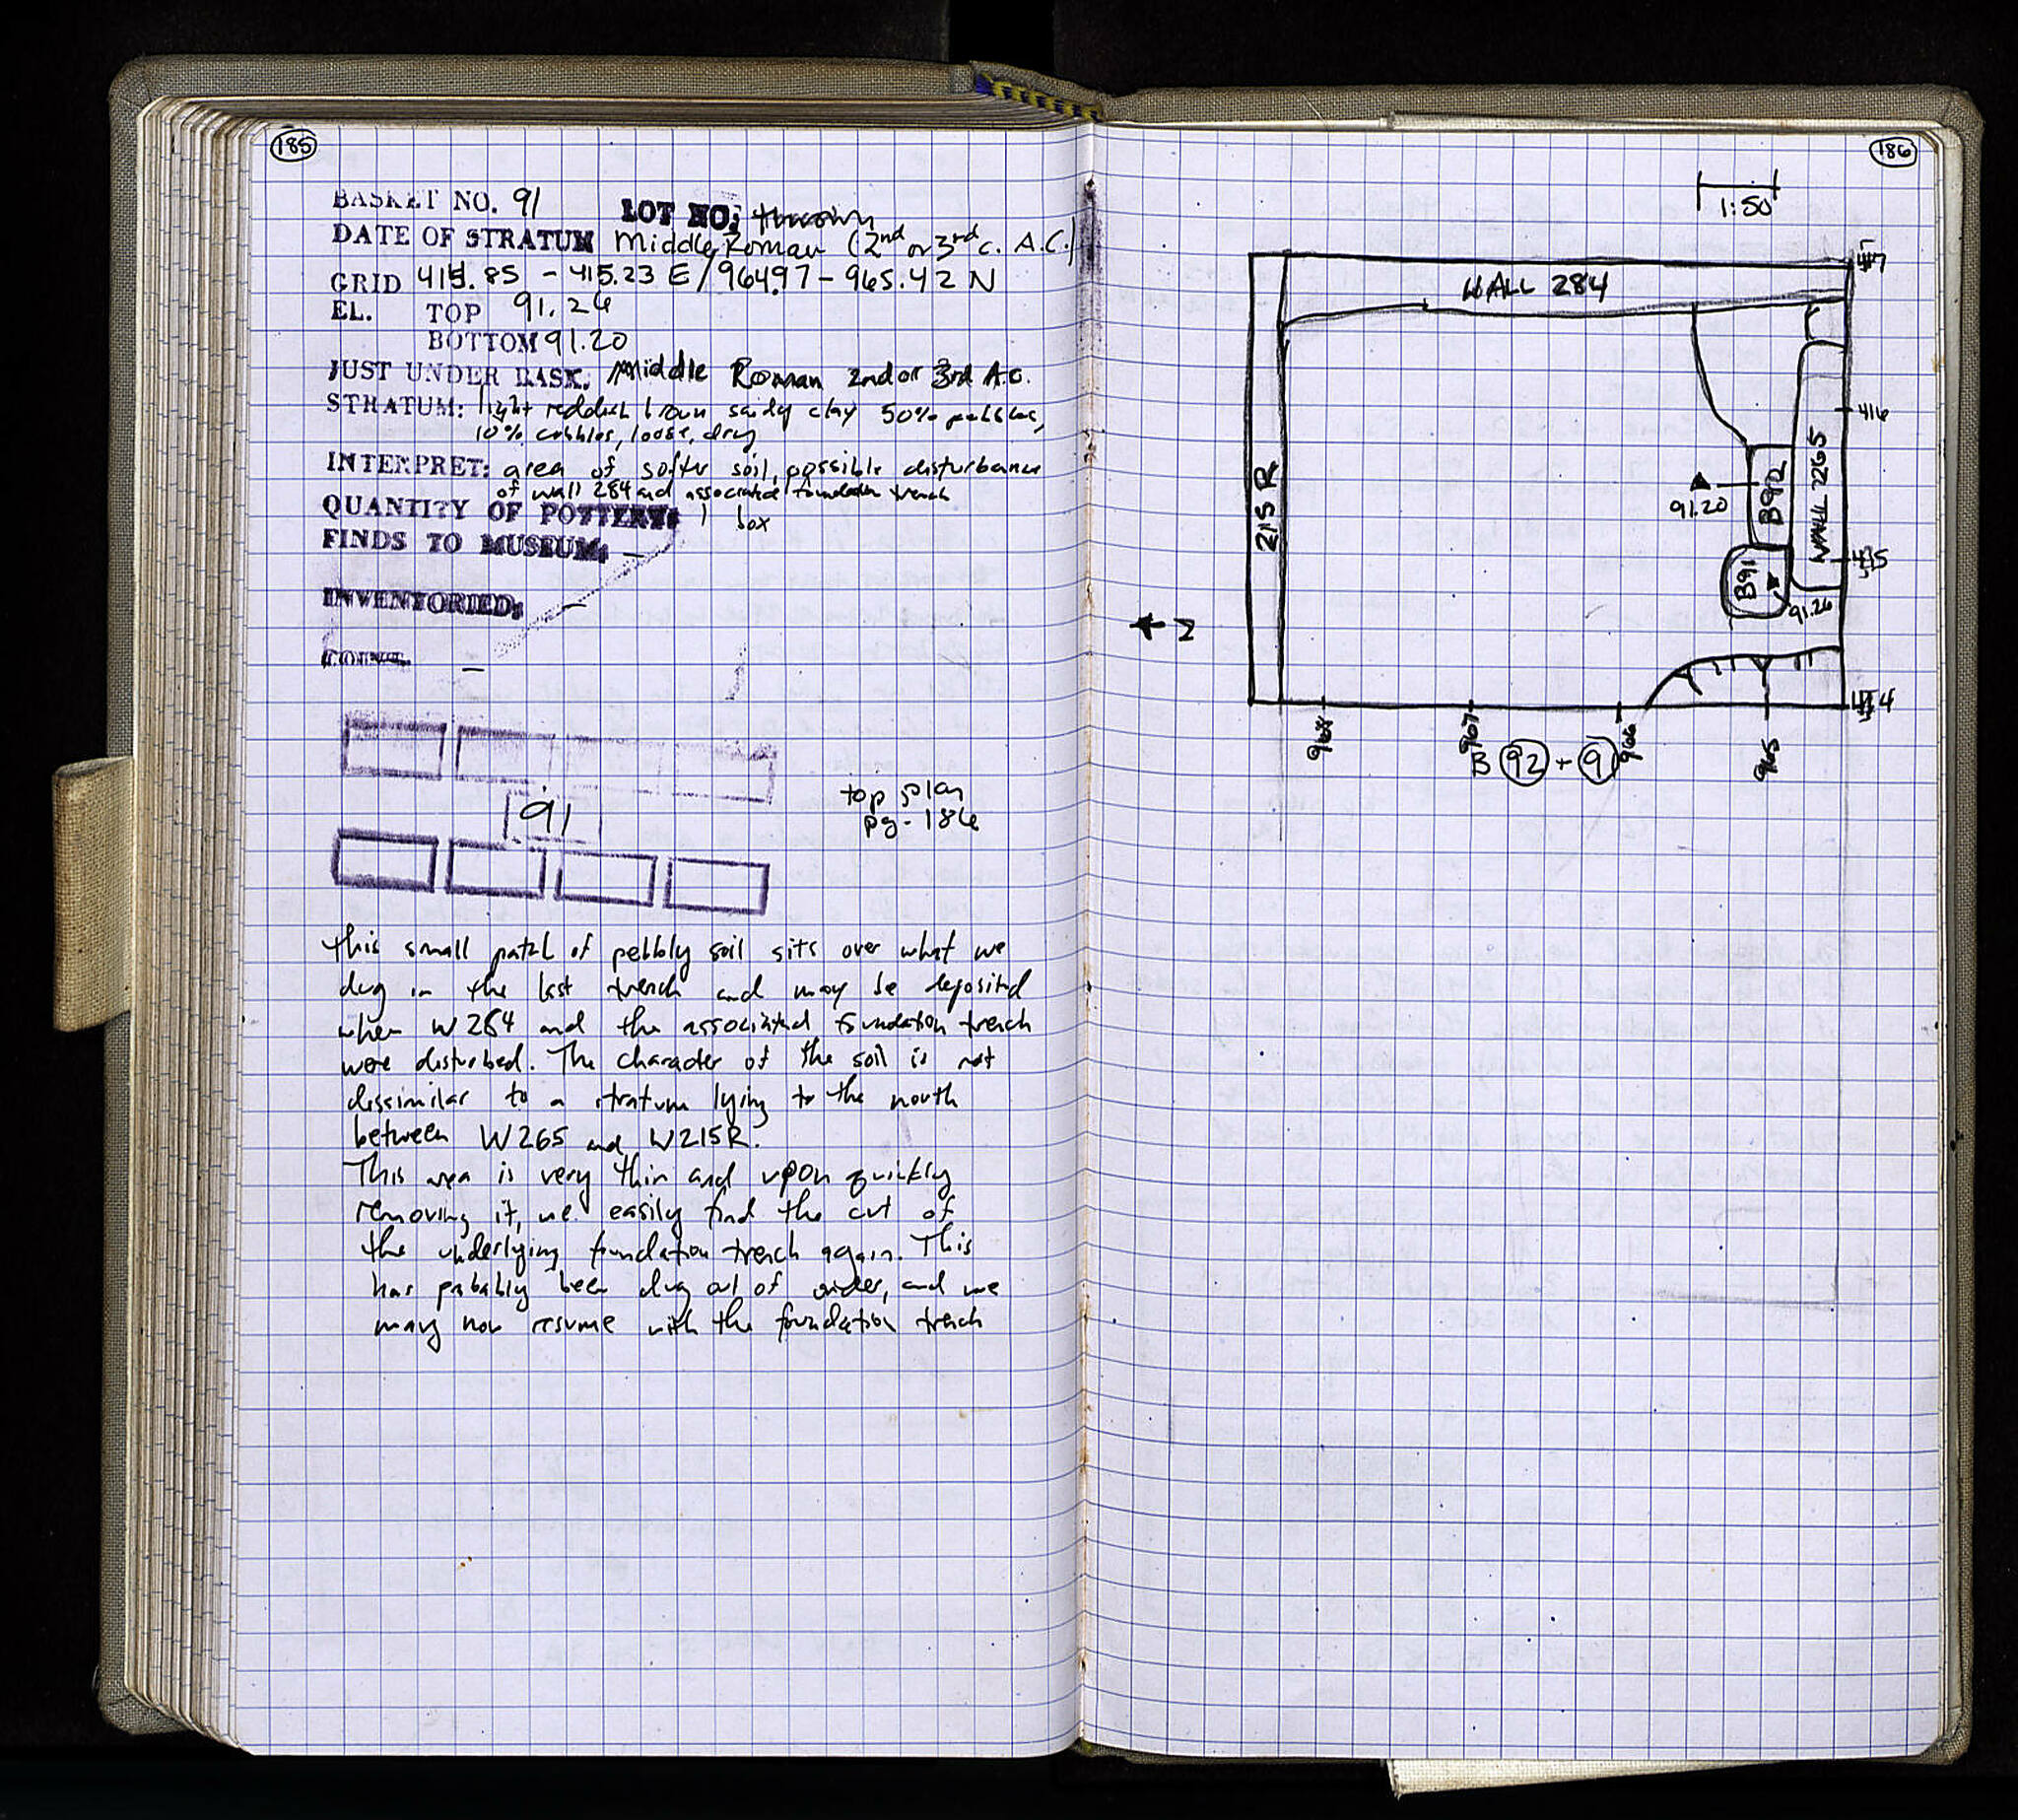 185
BASKET NO. 91 LOT NO:
DATE OF STRATUM Middle Roman (2nd or 3rd c. A.C.)
GRID 414.85 - 415.23 E/964.97 - 965.42 N
EL. TOP 91.26
BOTTOM 91.20
JUST UNDER BASK. Middle Roman 2nd or 3rd A.C.
STRATUM: light reddish brown sandy clay 50% pebbles,
10% cobbles, loose, dry
INTERPRET: area of softer soil, possible disturbance
of wall 284 and associated foundation trench
QUANTITY OF POTTERY: 1 box
FINDS TO MUSEUM: –
INVENTORIED: –
COINS. –
91
top plan
pg. 186
this small patch of pebbly soil sits over what we
dug in the last trench and may be deposited
when W 284 and the associated foundation trench
were disturbed. The character of the soil is not
dissimilar to a stratum lying to the north
between W265 and W215R.
This area is very thin and upon quickly
removing it, we easily find the cut of
the underlying foundation trench again. This
has probably been dug out of order, and we
may now resume with the foundation trench
186
1:50
WALL 284
417
416
415
414
215 R
WALL 2265
B92
91.20
B91
91.26
N
968
967
966
965
B 92 + 91